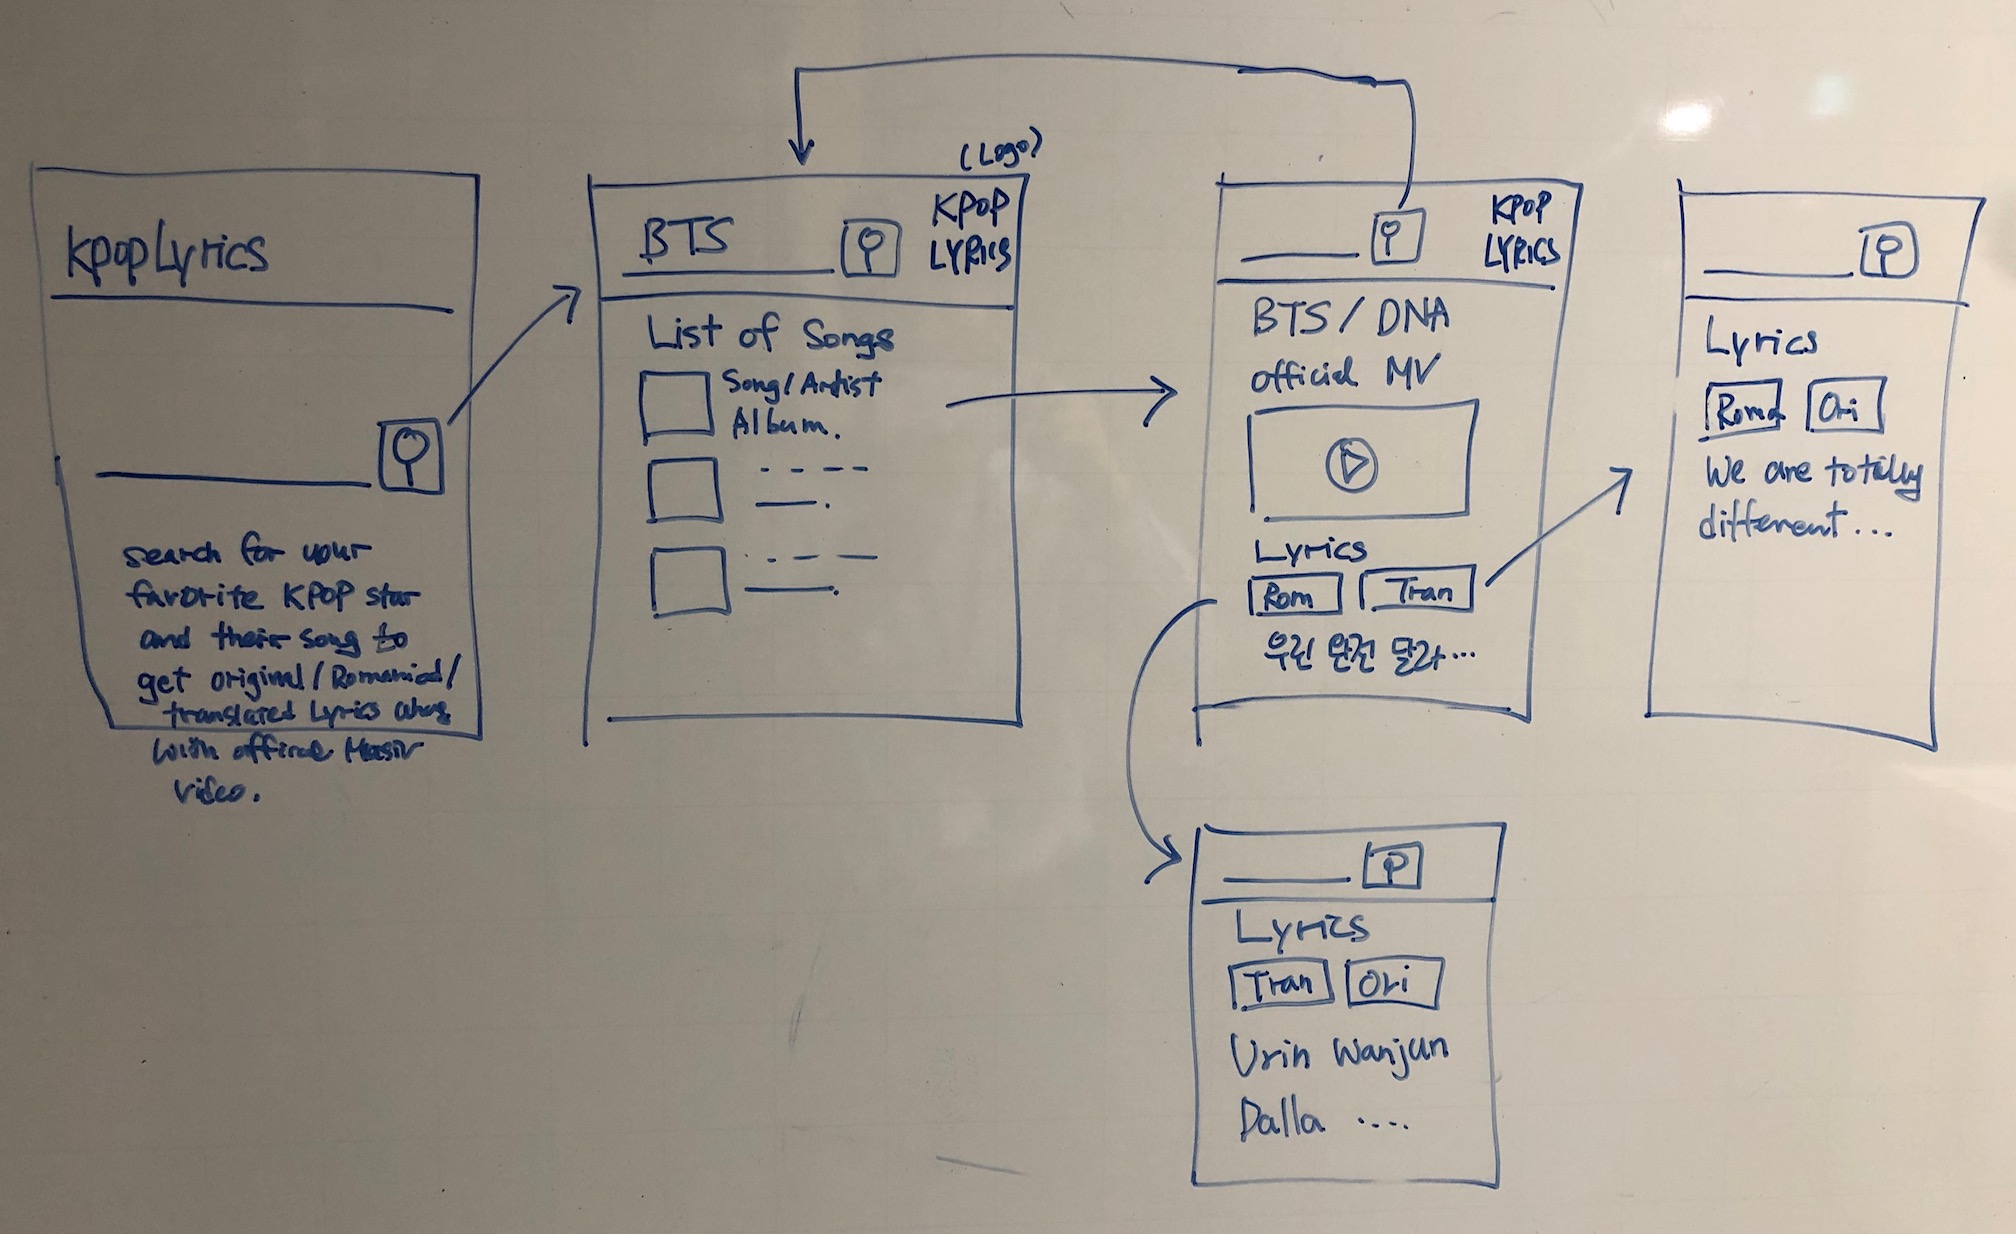 KpopLyrics
search for your
favorite KPOP star
and their song to
get original/Romanized/
translated Lyrics along
with official Music
video.
(Logo)
BTS
KPOP
LYRICS
List of Songs
Song/Artist
Album.
KPOP
LYRICS
BTS / DNA
official MV
Lyrics
Rom Tran
우린 완전 달라...
Lyrics
Roma Ori
We are totally
different...
Lyrics
Tran Ori
Urin Wanjun
Dalla ....